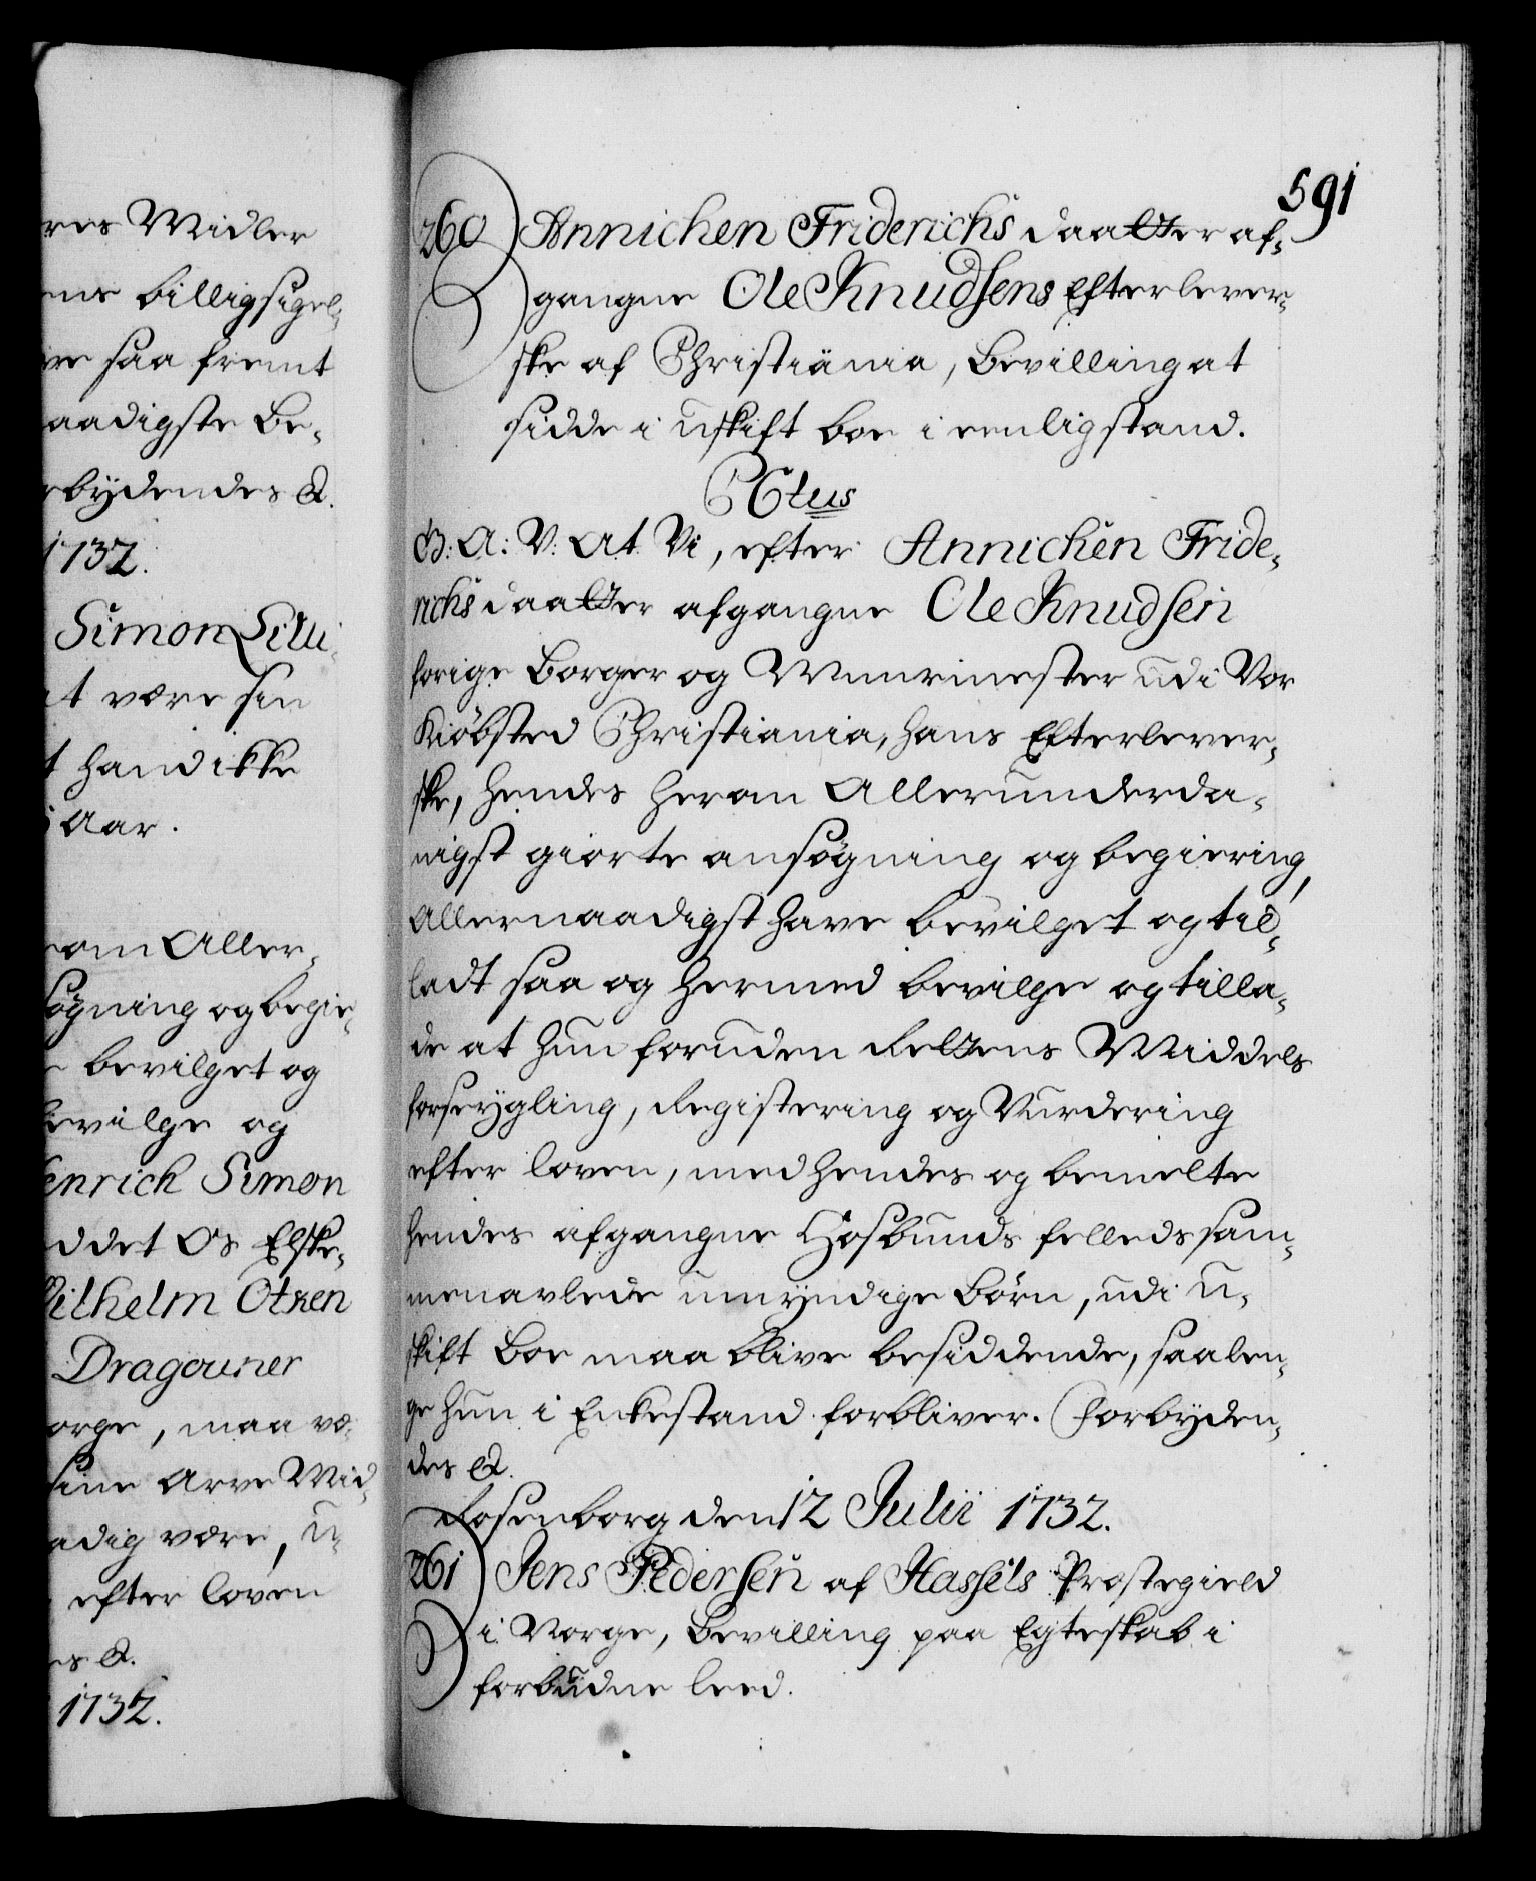 res Midler
ens billigsigel-
re saa fremt
aadigste Be-
rbÿdendes &.
1732.
Simon
at være sin
t hand ikke
Aar.
rom Aller-
søgning og begie-
bevilget og
bevilge og
enrich Simon
ddet Os Elske-
Wilhelm Otken
Dragouner
orge, maa væ-
sine Arve Mid-
adig være, u-
efter loven
es &.
1732.
591
260 Annichen Friderichs daatter af-
gangne Ole Knudsens Efterlever-
ske af Christiania, Bevilling at
sidde i uskift boe i eenlig stand.
PCtus
G: A: V: At Vi, efter Annichen Fride-
richs daatter afgangne Ole Knudsen
forige Borger og Muurmester udi Vor
Kiöbsted Christiania, hans Efterlever-
ske, hendes herom Allerunderda-
nigst giorte ansøgning og begiering,
Allernaadigst have bevilget og til-
ladt saa og hermed bevilge og tilla-
de at hun foruden Rettens Middels
forseygling, Registering og Vurdering
efter loven, med hendes og bemelte
hendes afgangne Hosbunds felleds sam-
menavlede umÿndige Börn, udi u-
skift Boe maa blive besiddende, saalen-
ge hun i Enkestand forbliver. Forbÿden-
des &.
Rosenborg den 12 Julii 1732.
261 Jens Pedersen af Hassels Præstegield
i Norge, Bevilling paa Egteskab i
forbudne leed.